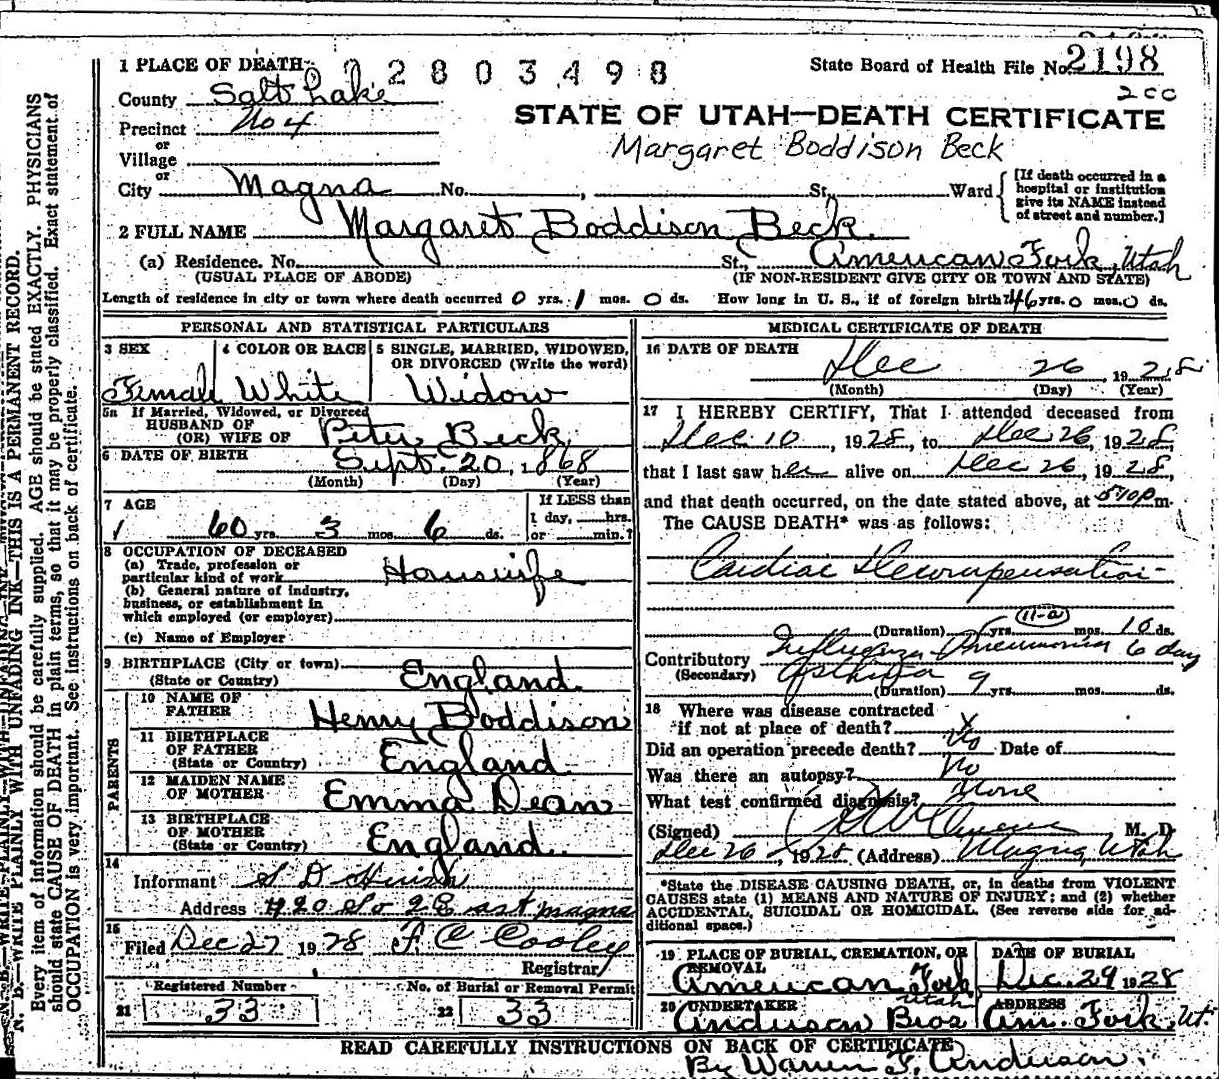 1 PLACE OF DEATH
0 2 8 0 3 4 9 8
State Board of Health File No. 2198
County Salt Lake
2cc
STATE OF UTAH—DEATH CERTIFICATE
Precinct No 4
or
Village
Margaret Boddison Beck
or
City Magna No. , St., Ward
[If death occurred in a hospital or institution give its NAME instead of street and number.]
2 FULL NAME Margaret Boddison Beck.
(a) Residence. No. St., American Fork, Utah
(USUAL PLACE OF ABODE) (IF NON-RESIDENT GIVE CITY OR TOWN AND STATE)
Length of residence in city or town where death occurred 0 yrs. 1 mos. 0 ds. How long in U. S., if of foreign birth? 46 yrs. 0 mos. 0 ds.
PERSONAL AND STATISTICAL PARTICULARS
3 SEX
4 COLOR OR RACE
5 SINGLE, MARRIED, WIDOWED, OR DIVORCED (Write the word)
Female White Widow
5a If Married, Widowed, or Divorced
HUSBAND OF
(OR) WIFE OF Peter Beck
6 DATE OF BIRTH Sept. 20, 1868
(Month) (Day) (Year)
7 AGE
If LESS than
1 day, hrs.
60 yrs. 3 mos. 6 ds. or min.?
8 OCCUPATION OF DECEASED
(a) Trade, profession or
particular kind of work Housewife
(b) General nature of industry,
business, or establishment in
which employed (or employer)
(c) Name of Employer
9 BIRTHPLACE (City or town)
(State or Country) England
PARENTS
10 NAME OF
FATHER Henry Boddison
11 BIRTHPLACE
OF FATHER
(State or Country) England
12 MAIDEN NAME
OF MOTHER Emma Dean
13 BIRTHPLACE
OF MOTHER
(State or Country) England
14
Informant S D
Address 420 So 2 East Magna
15
Filed Dec 27 1928 F. C Cooley
Registrar
Registered Number
No. of Burial or Removal Permit
21 33
22 33
MEDICAL CERTIFICATE OF DEATH
16 DATE OF DEATH
Dec 26, 1928
(Month) (Day) (Year)
17 I HEREBY CERTIFY, That I attended deceased from
Dec 10, 1928, to Dec 26, 1928,
that I last saw her alive on Dec 26, 1928,
and that death occurred, on the date stated above, at 5:10 p m.
The CAUSE DEATH* was as follows:
Cardiac Decompensation
11-a
(Duration) yrs. mos. 10 ds.
Contributory Influenza Pneumonia 6 day
(Secondary) Asthma
(Duration) 9 yrs. mos. ds.
18 Where was disease contracted
if not at place of death?
Did an operation precede death? No Date of
Was there an autopsy? No
What test confirmed diagnosis? None
(Signed) M. D.
Dec 26, 1928 (Address) Magna, Utah
*State the DISEASE CAUSING DEATH, or, in deaths from VIOLENT
CAUSES state (1) MEANS AND NATURE OF INJURY; and (2) whether
ACCIDENTAL, SUICIDAL OR HOMICIDAL. (See reverse side for ad-
ditional space.)
19 PLACE OF BURIAL, CREMATION, OR
REMOVAL
American Fork
Utah
DATE OF BURIAL
Dec. 29 1928
20 UNDERTAKER
Anderson Bros
ADDRESS
Am. Fork, Ut.
READ CAREFULLY INSTRUCTIONS ON BACK OF CERTIFICATE
By Warren F. Anderson.
N. B.—WRITE PLAINLY WITH UNFADING INK—THIS IS A PERMANENT RECORD.
Every item of information should be carefully supplied. AGE should be stated EXACTLY. PHYSICIANS
should state CAUSE OF DEATH in plain terms, so that it may be properly classified. Exact statement of
OCCUPATION is very important. See instructions on back of certificate.